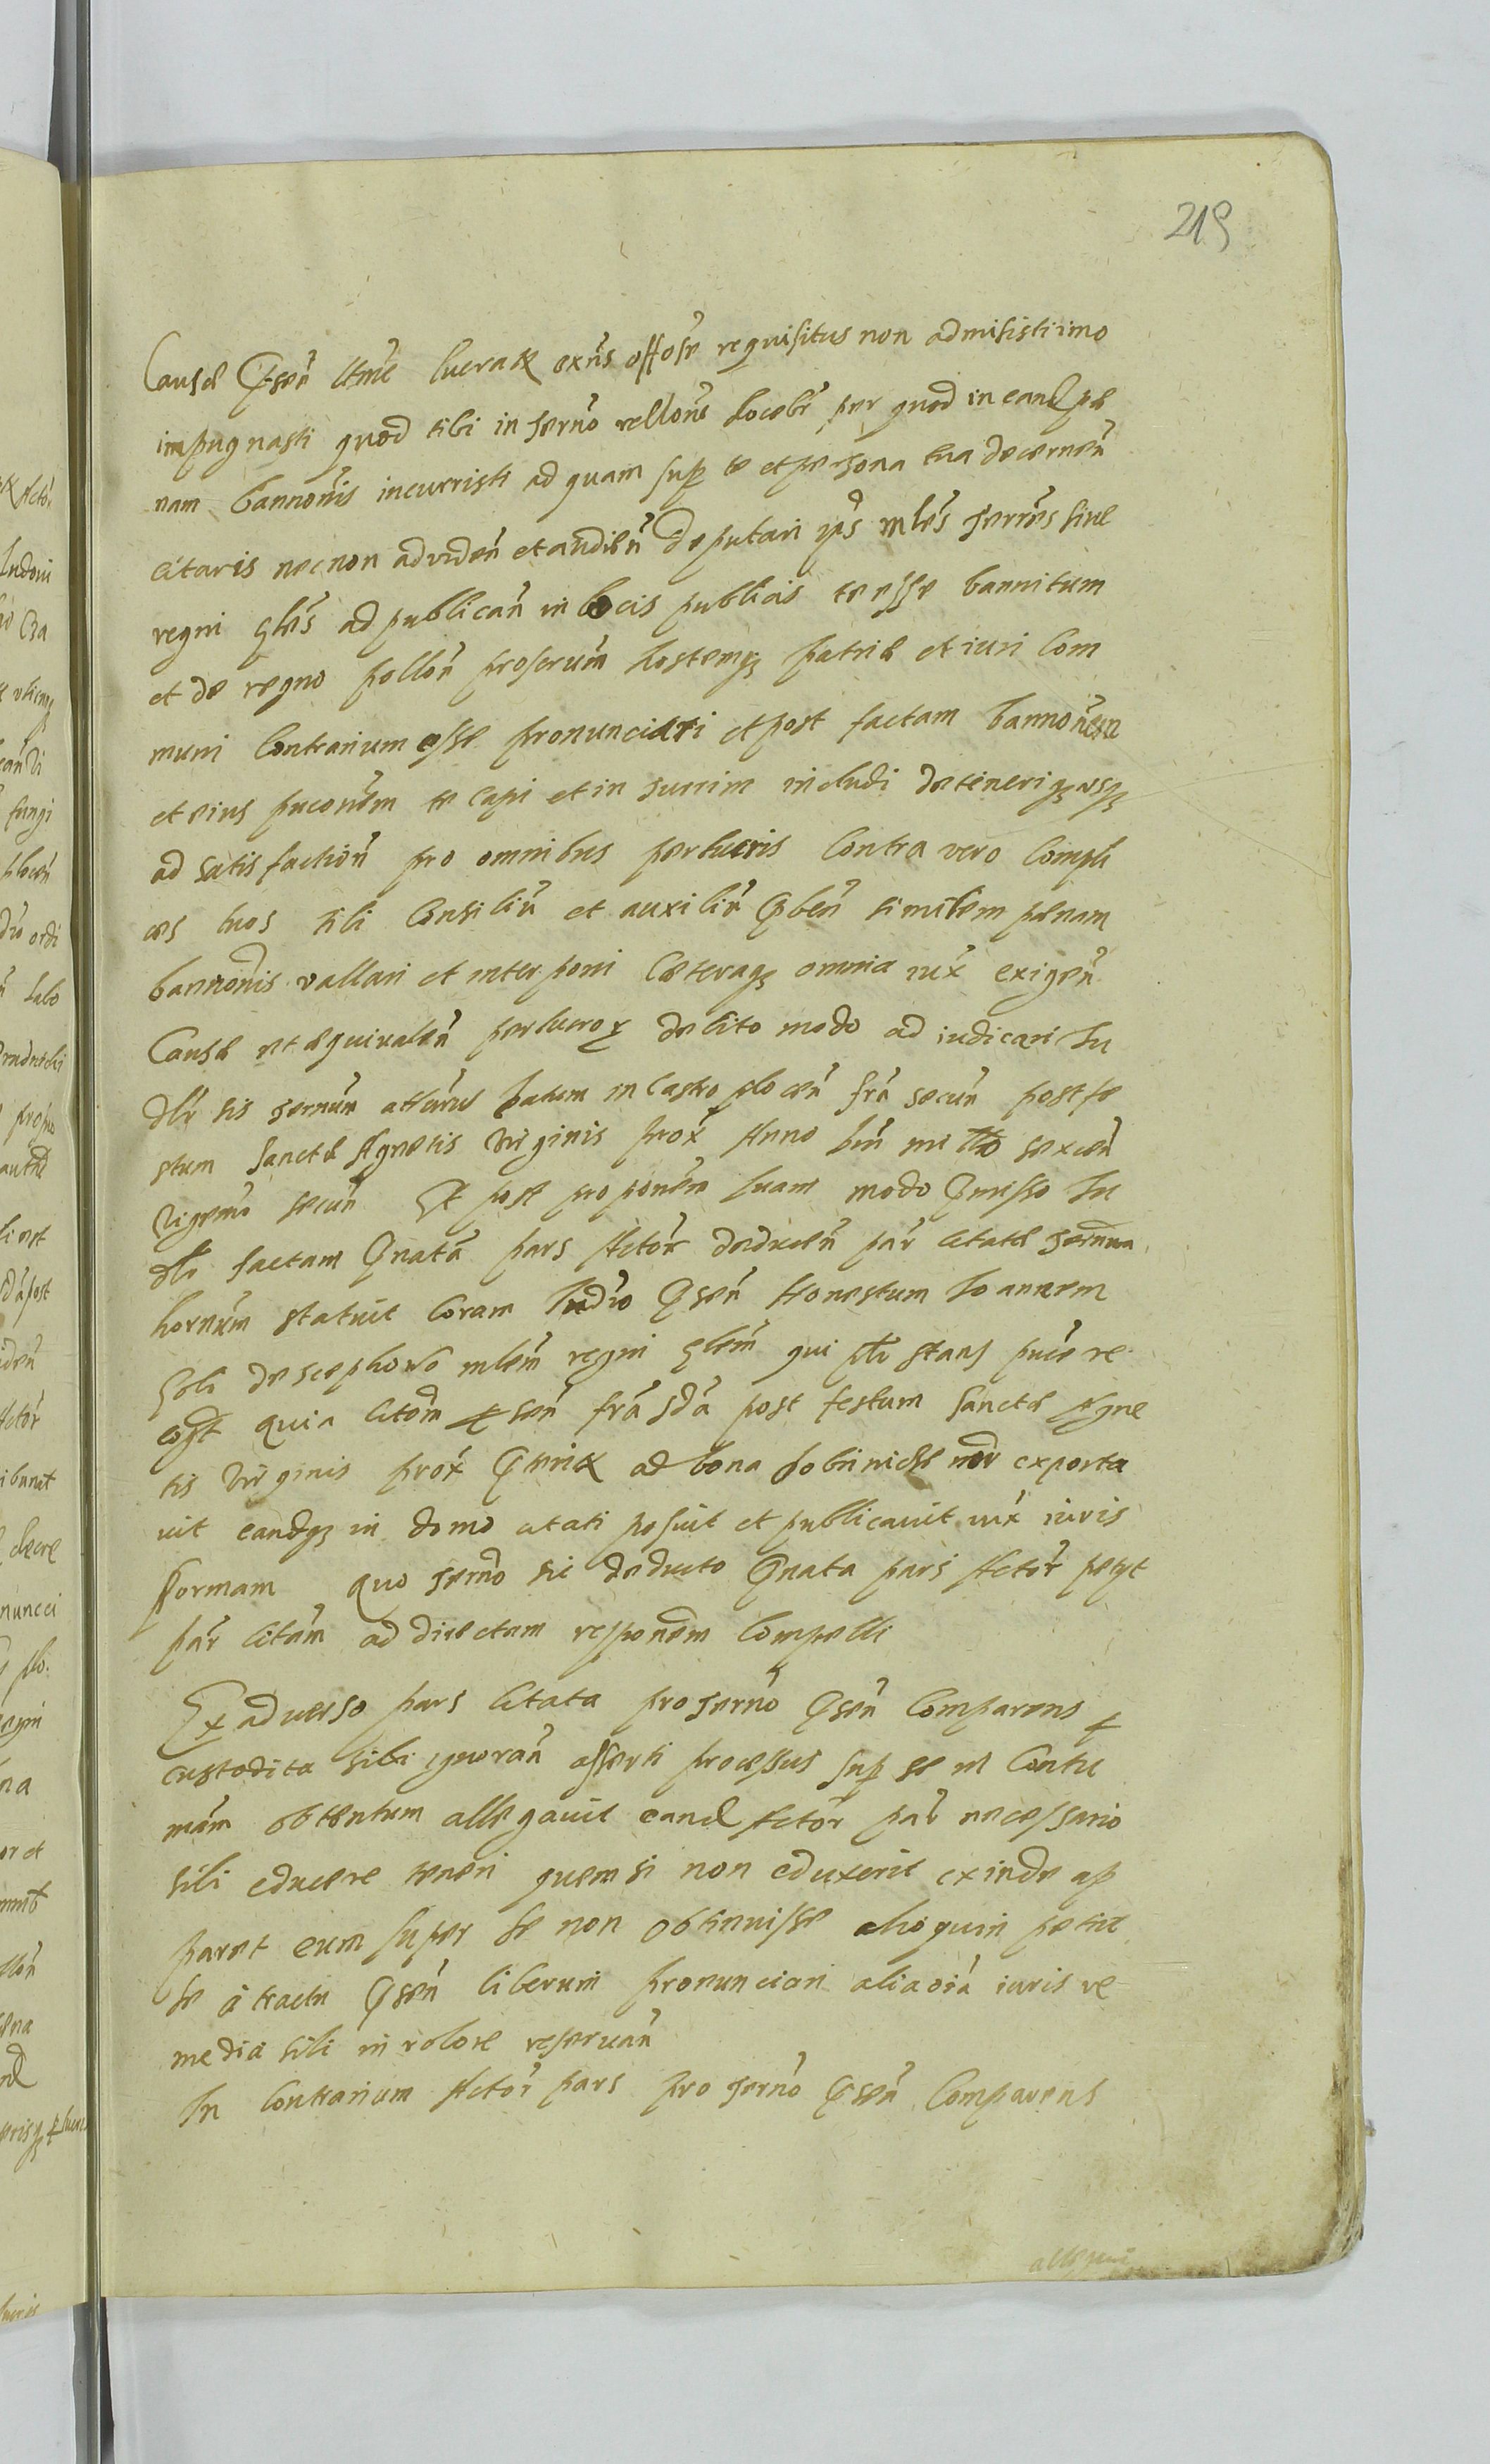 219
Causæ Pñsen ltme lucratæ exñs offose requisitus non admisisti imo
impugnasti quod tibi in termo rellõne docebr per quod in eand pæ
nam bannonis incurristi ad quam sup te et persona tua decernen
citaris necnon ad viden et audien deputari ips mles terres sive
regni gñles ad publican in locis publicis te esse bannitum
et de regno pollon proscrum hostemq patriæ et iuri Com
muni Contrarium esse pronunciari et post factam bannonem
et eius pucõnem te capi et in turrim includi detineriq usq
ad satisfaction pro omnibus perlucris Contra vero Compli
ces tuos tibi Consiliu et auxiliu Pben similem pænam
bannonis vallari et interponi Cæteraq omnia iux exigen
Causæ et æquivalen perlucror debito modo ad iudicari Iu
dlr sis termin atturus Datum in Castro plocen fria secun post fe
stum Sanctæ Agnetis Virginis prox Anno Dni millo sexcen
vigemo secun Et post proponem suam modo Pmisso Iu
dlr factam Pnata pars Actor deducen par Citatæ termin
hornum statuit Coram Iudio Psen Honestum Ioannem
Goli de Scephowo mlem regni gñlem qui ptr stans puce re
cogt quia Citom Psen fria sda post festum Sanctæ Agne
tis Virginis prox Pteritæ ad bona Dobrnicze mor exporta
vit eandq in domo citati posuit et publicavit iux iuris
formam quo termo sic deducto Pnata pars Actor petyt
par Citam ad directam responem Compelli
Ex adverso pars Citata pro termo Psen Comparens
custodita sibi ignoran asserti processus sup se in Contu
mam obtentum allegavit eand Actor par necessario
sibi educere teneri quem si non eduxerit exinde ap
paret eum super se non obtinuisse alioquin petiit
se à tractu Psen liberum pronunciari alia oia iuris re
media sibi in robore reservan
In Contrarium Actor pars pro termo Psen Comparens